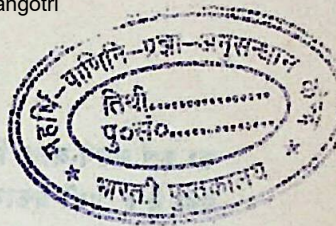 angotri
महर्षि-पाणिनि-प्रज्ञा-अनुसन्धान केन्द्र
तिथी................
पु०सं०................
★ भारती पुस्तकालय ★